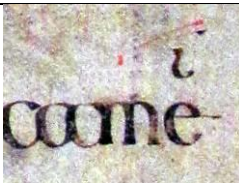 i
coome